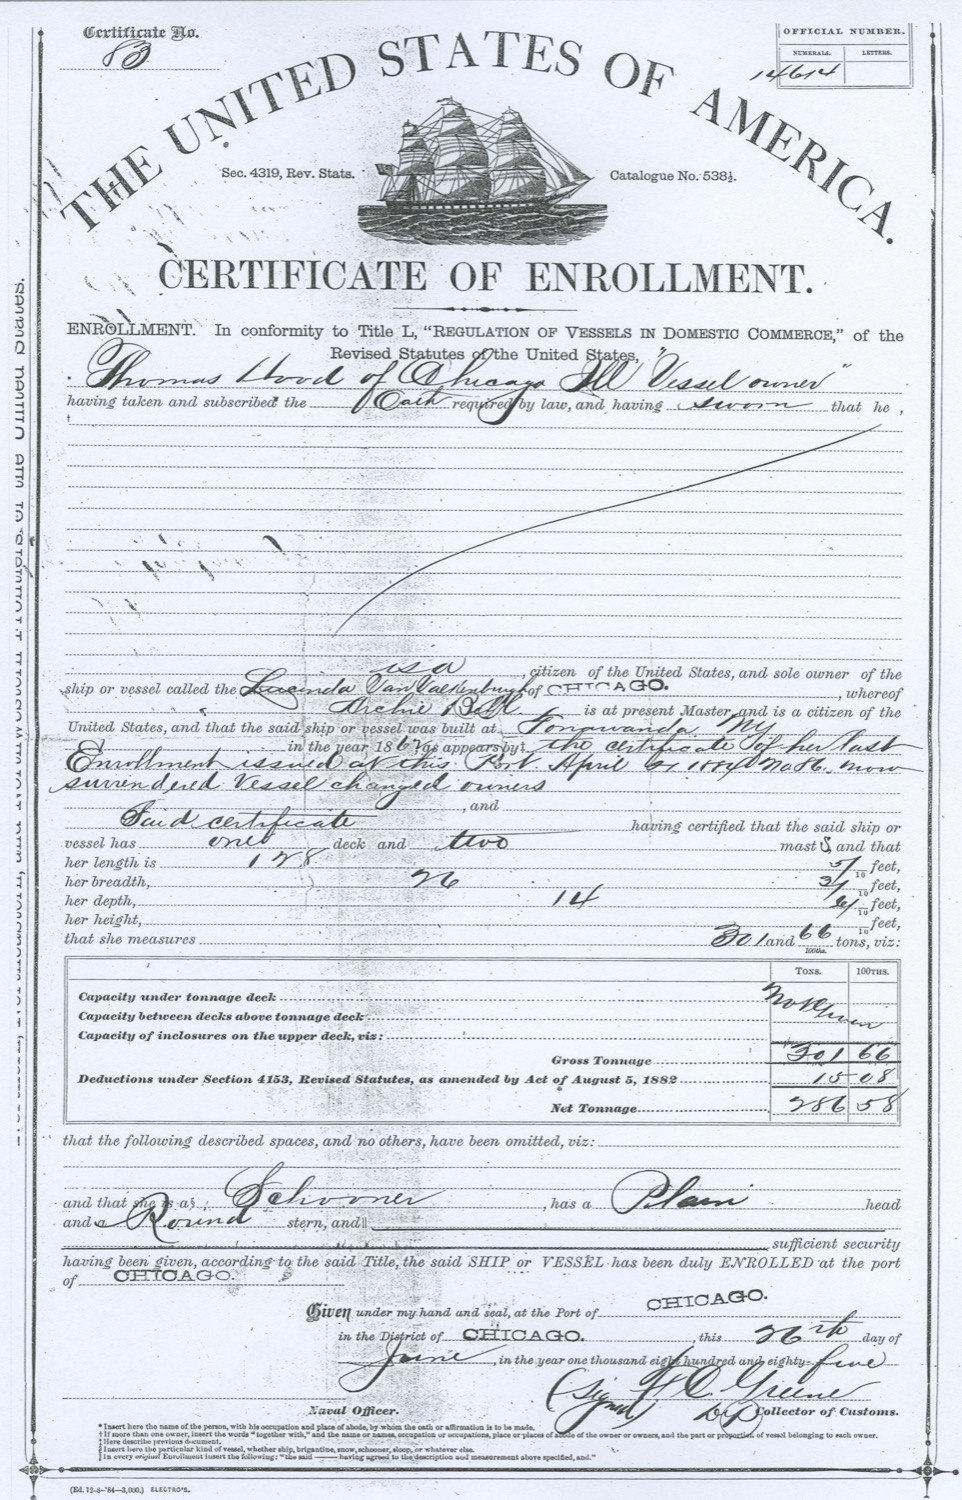 Certificate No.
83
OFFICIAL NUMBER.
NUMERALS. LETTERS.
14614
THE UNITED STATES OF AMERICA.
Sec. 4319, Rev. Stats.
Catalogue No. 538½.
CERTIFICATE OF ENROLLMENT.
ENROLLMENT. In conformity to Title L, "REGULATION OF VESSELS IN DOMESTIC COMMERCE," of the
Revised Statutes of the United States,
Thomas Hood of Chicago Ill "Vessel owner"
having taken and subscribed the Oath required by law, and having sworn that he ,
is a , citizen of the United States, and sole owner of the
ship or vessel called the Lucinda Van Valkenburgh of CHICAGO. , whereof
Archie Bell is at present Master, and is a citizen of the
United States, and that the said ship or vessel was built at Tonawanda, NY
in the year 1862 as appears by‡ the certificate of her last
Enrollment issued at this Port April 1884 No 86. now
surrendered Vessel changed owners
, and
Said certificate having certified that the said ship or
vessel has one deck and two masts and that
her length is 128 5/10 feet,
her breadth, 26 3/10 feet,
her depth, 14 /10 feet,
her height, /10 feet,
that she measures 301 and 66/100ths. tons, viz:
TONS. 100THS.
Capacity under tonnage deck
Capacity between decks above tonnage deck
Capacity of inclosures on the upper deck, viz:
Not Given
Gross Tonnage 301 66
Deductions under Section 4153, Revised Statutes, as amended by Act of August 5, 1882 15 08
Net Tonnage 286 58
that the following described spaces, and no others, have been omitted, viz:
and that she is a§ Schooner , has a Plain head
and a Round stern, and||
sufficient security
having been given, according to the said Title, the said SHIP or VESSEL has been duly ENROLLED at the port
of CHICAGO.
Given under my hand and seal, at the Port of CHICAGO.
in the District of CHICAGO. , this 26th day of
June , in the year one thousand eight hundred and eighty-five
(Signed) Greene
Naval Officer. Dep Collector of Customs.
* Insert here the name of the person, with his occupation and place of abode, by whom the oath or affirmation is to be made.
† If more than one owner, insert the words "together with," and the name or names, occupation or occupations, place or places of abode of the owner or owners, and the part or proportion of vessel belonging to each owner.
‡ Here describe previous document.
§ Insert here the particular kind of vessel, whether ship, brigantine, snow, schooner, sloop, or whatever else.
|| In every original Enrollment insert the following: "the said —— having agreed to the description and measurement above specified, and."
(Ed. 12-8-'84—3,000.) ELECTRO'S.